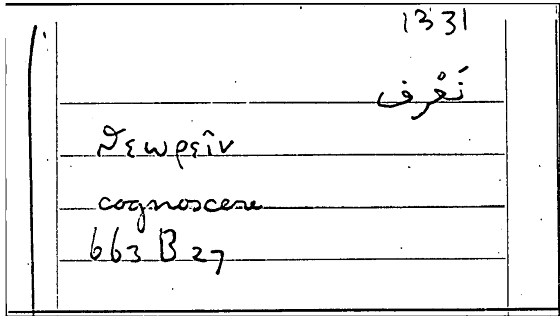 1331
نَعْرف
θεωρεῖν
cognoscere
663 B 27